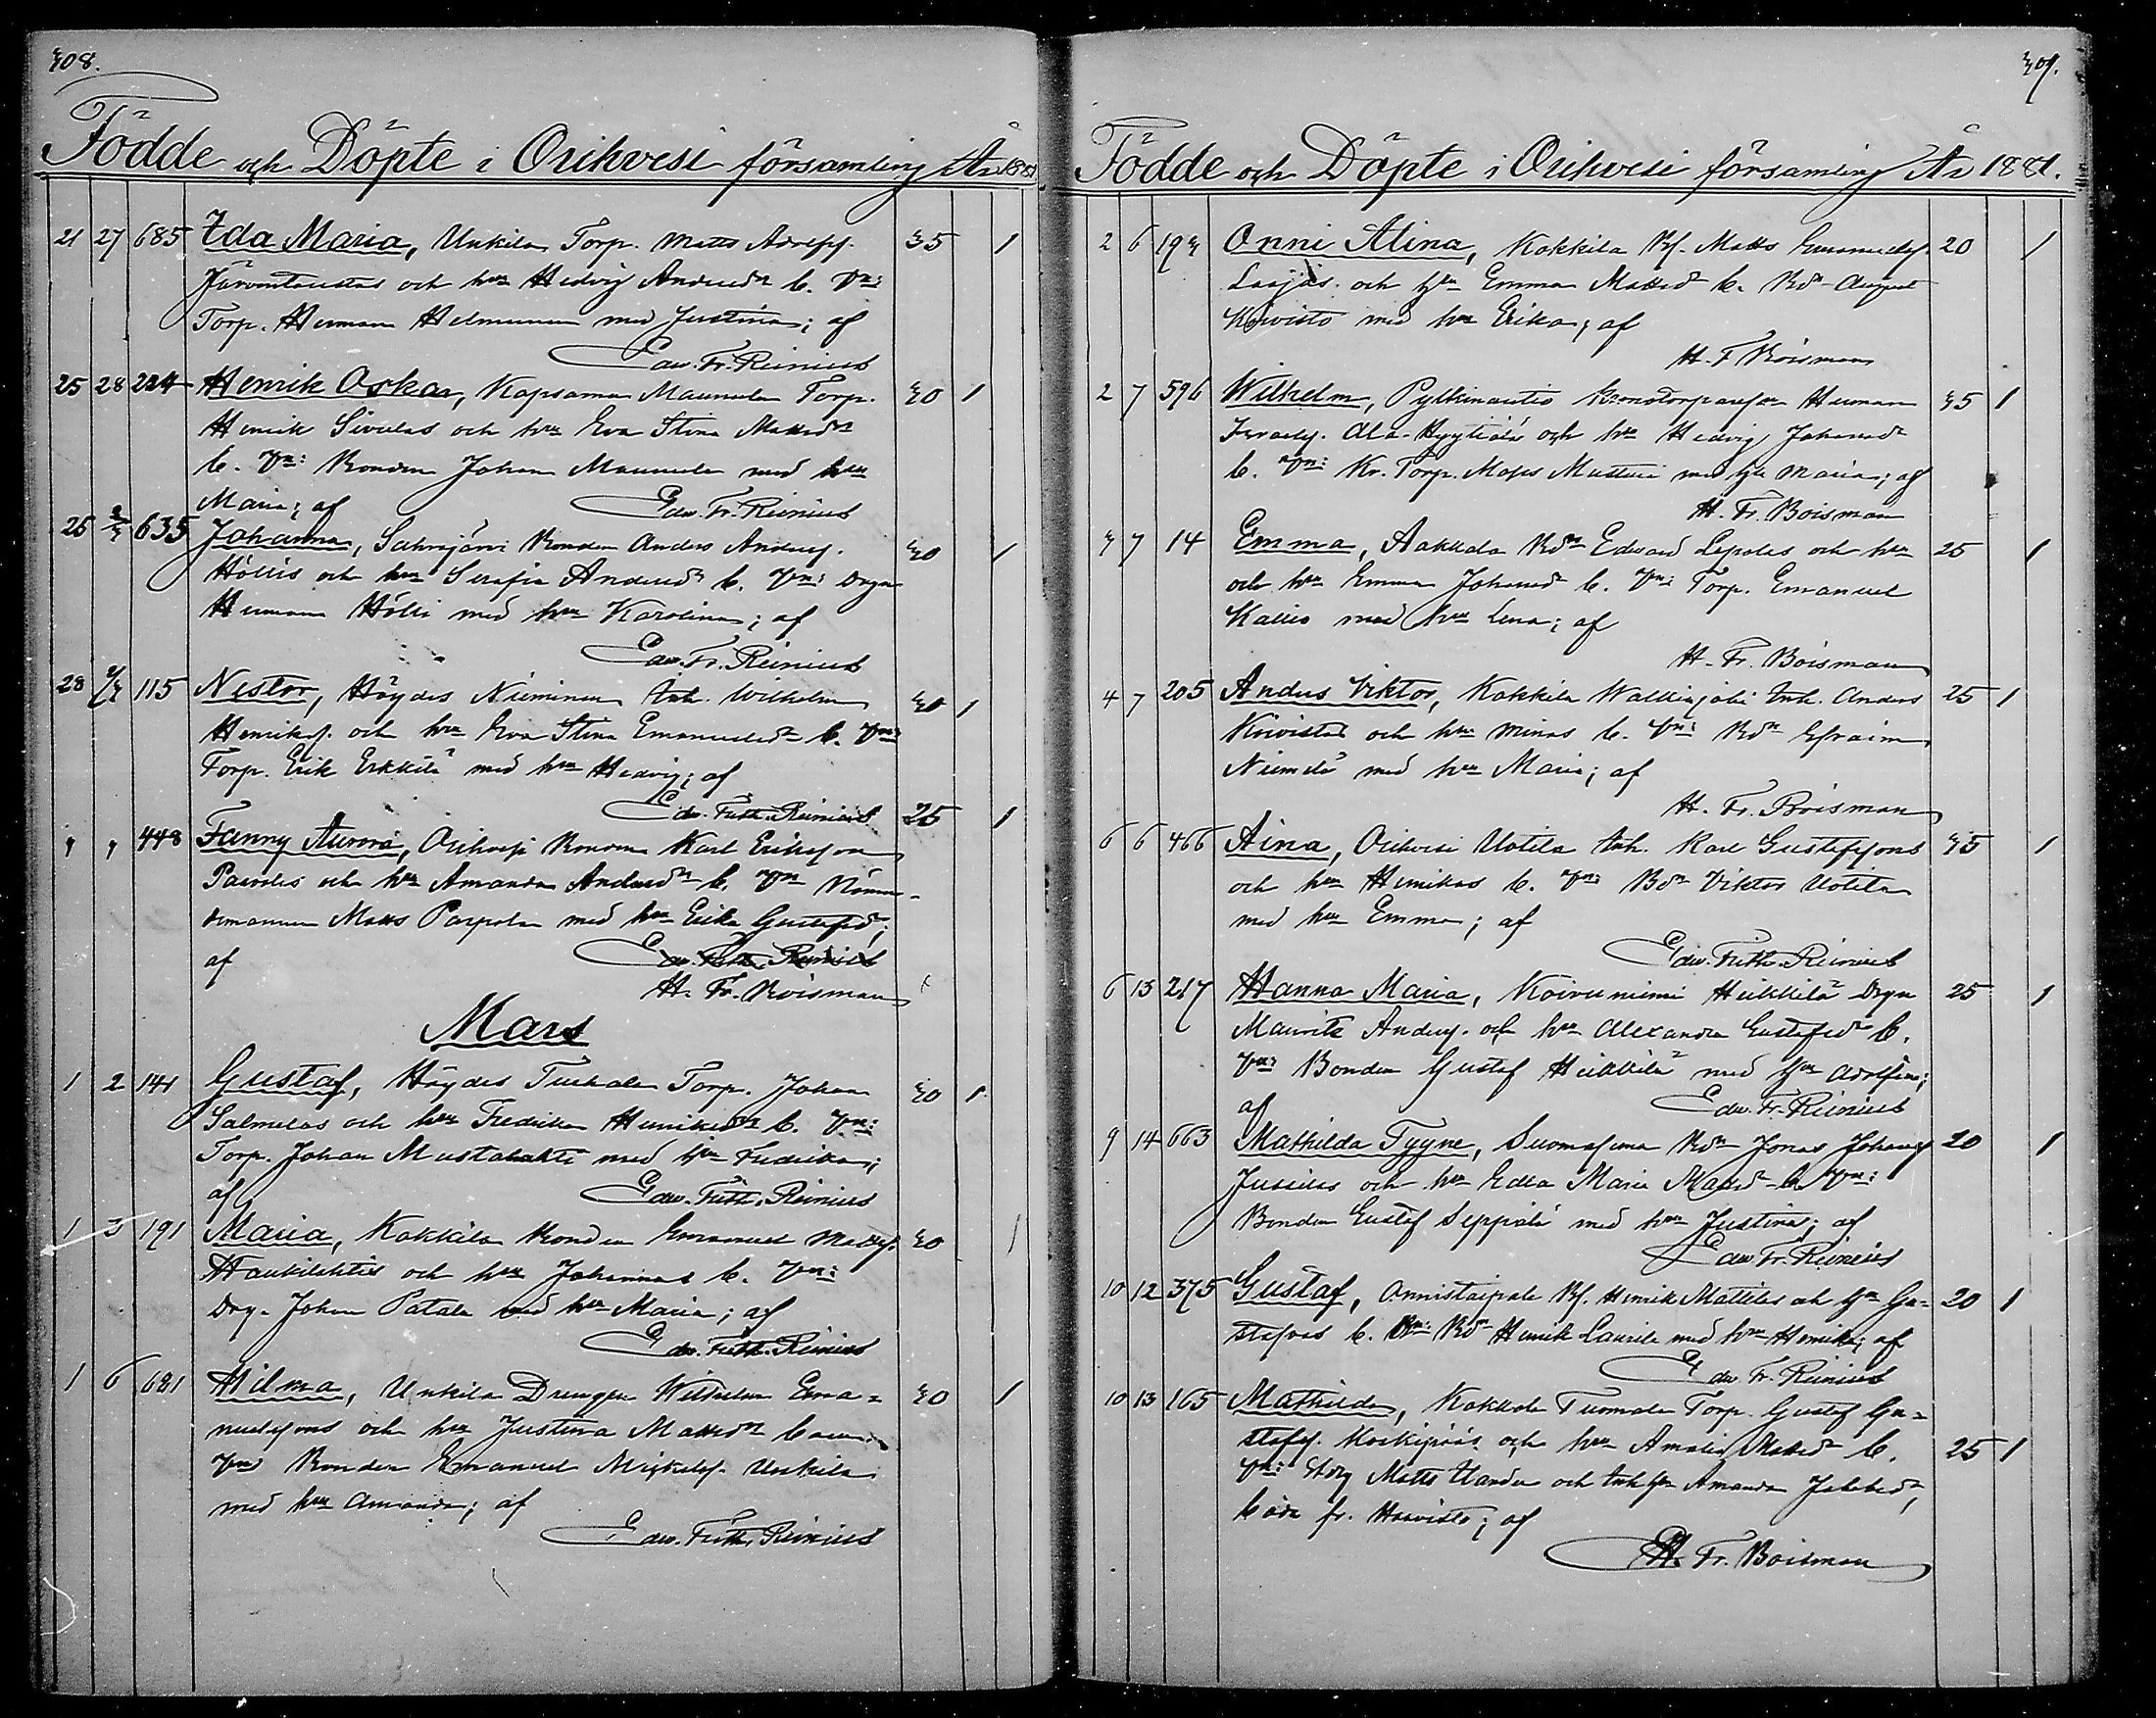 308.
Födde och Döpte i Orihvesi församling År 1881
21 27 685 Ida Maria, Unkila Torp. Matts Adolfsf. 35 1
Järventaustas och hru Hedvig Andersdr b. Vn:
Torp. Herman Helminen med Justina; af
Edw. Fr. Reinius
25 28 224 Henrik Oskar, Kapsama Maunula Torp. 30 1
Henrik Sivulas och hru Eva Stina Mattsdr
b. Vn: Bonden Johan Maunula med hru
Maria; af Edw. Fr. Reinius
26 2/3 635 Johanna, Sahrajärvi Bonden Anders Andersf. 30 1
Höllis och hru Serafia Andersdr b. Vn: Drgn
Herman Hölli med hru Karolina; af
Edw. Fr. Reinius
28 115 Nestor, Höydes Nieminen Inh. Wilhelm 30 1
Henriksf. och hru Eva Stina Emanuelsdr b. Vn:
Torp. Erik Erkkilä med hru Hedvig; af
Edw. Frith. Reinius
" " 448 Fanny Aurora, Orihvesi Bonden Karl Eriksson 25 1
Paavolis och hru Amanda Andersdr b. Vn Nämn-
demannen Matts Parpola med hru Erika Gustafsdr;
af Edw. Frith. Reinius
H. Fr. Boisman
Mars
1 2 141 Gustaf, Höydes Turkala Torp. Johan 30 1
Salmelas och hru Fredrika Henriksdr b. Vn:
Torp. Johan Mustalahti med hru Fredrika;
af Edw. Frith. Reinius
1 5 191 Maria, Kokkila Bonden Emanuel Mattsf. 30 1
Haukilahtis och hru Johannas b. Vn:
Drg. Johan Patala med hru Maria; af
Edw. Frith. Reinius
1 6 681 Hilma, Unkila Drengen Wilhelm Ema- 30 1
nuelsons och hru Justina Mattsdr barn
Vn Bonden Emanuel Mickelsf. Unkila
med hru Amanda; af
Edw. Frith. Reinius
309.
Födde och Döpte i Orihvesi församling År 1881.
2 6 193 Onni Alina, Kokkila Bf. Matts Emanuelsf. 20 1
och hru Emma Mattsdr b. Bdn August
Koivisto med hru Erika; af
H. F Boisman
2 7 596 Wilhelm, Pylkinautio Kronotorparen Herman 35 1
Israelsf. Ala-Hyytiäläs och hru Hedvig Johansdr
b. Vn: Kr. Torp. Moses med hru Maria; af
H. Fr. Boisman
3 7 14 Emma, Aakkola Bdn Edvard Lepolas och hru 25 1
och hru Emma Johansdr b. Vn: Torp. Emanuel
Kallio med hru Lena; af
H. Fr. Boisman
4 7 205 Anders Viktor, Kokkila Walkinjoki Inh. Anders 25 1
Koivistos och hru Minas b. Vn: Bdn Efraim
Niemelä med hru Maria; af
H. Fr. Boisman
6 6 466 Aina, Orihvesi Uotila Inh. Karl Gustafsons 35 1
och hru Henrikas b. Vn: Bdn Viktor Uotila
med hru Emma; af
Edw. Frith. Reinius
6 13 217 Hanna Maria, Koivuniemi Heikkilä Drgn 25 1
Maurits Andersf. och hru Alexandra Gustafsdr b.
Vn: Bonden Gustaf Heikkilä med hru Adolfina;
af Edw. Fr. Reinius
9 14 663 Mathilda Tyyne, Suomasema Bdn Jonas Johansf 20 1
Jussilas och hru Edla Maria Mattsdr b. Vn:
Bonden Gustaf Seppälä med hru Justina; af
Edw. Fr. Reinius
10 12 375 Gustaf, Onnistaipale Bf. Henrik Mattilas och hru Gu- 20 1
stafvas b. Vn: Bdn Henrik Laurila med hru Henrika; af
Edw. Fr. Reinius
10 13 165 Mathilda, Kokkola Tuomala Torp. Gustaf Gu-
stafsf. och hru Amalia Mattsdr b. 25 1
Vn: Matts och Inh hru Amanda Jakobsdr,
båda fr. af
H. Fr. Boisman